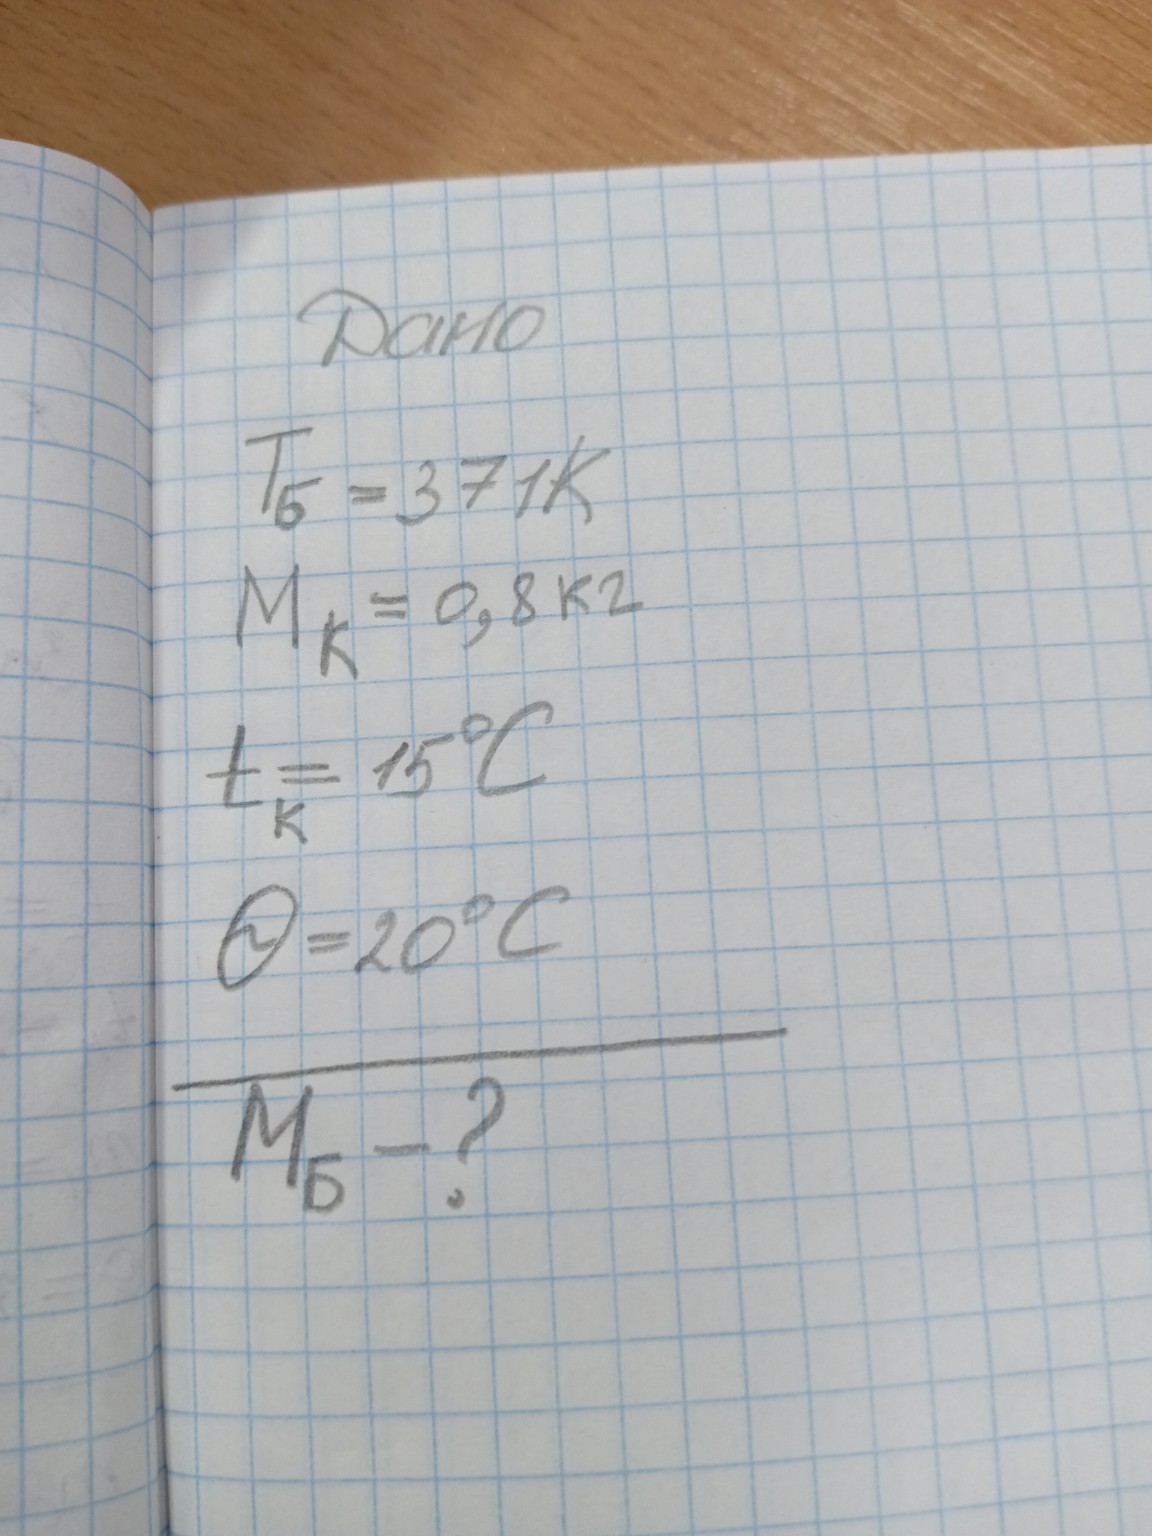 Дано
Tб = 371К
Mк = 0,8 кг
tк = 15°C
Θ = 20°C
Mб - ?